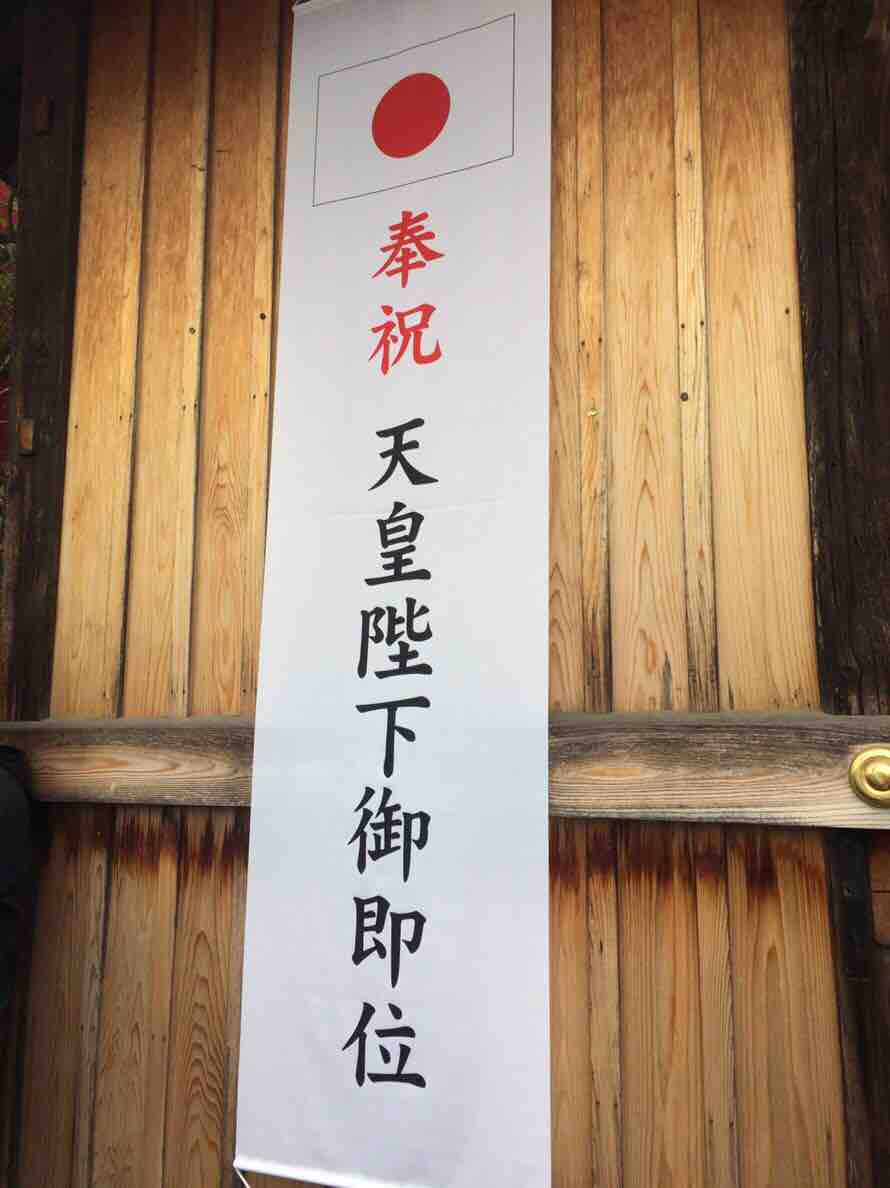 奉祝 天皇陛下御即位